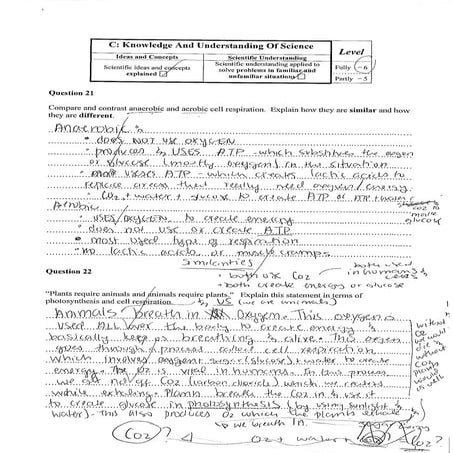 C: Knowledge And Understanding Of Science
Level
Ideas and Concepts
Scientific Understanding
Scientific ideas and concepts explained
Scientific understanding applied to solve problems in familiar and unfamiliar situations
Fully – 6
Partly – 5
Question 21
Compare and contrast anaerobic and aerobic cell respiration. Explain how they are similar and how
they are different.
Anaerobic:
• does NOT use oxygen
• produces & uses ATP - which substitutes the oxygen
or glucose (mostly oxygen) in the situation
ATP - which creates lactic acids to
replace areas that really need oxygen/energy.
• CO2 + water + glucose to create ATP
Aerobic
• uses oxygen to create energy
• does not use or create ATP
• most used type of respiration
• no lactic acids or muscle cramps
Similarities
• both use CO2
• both create energy or glucose
both used
in humans &
Question 22
"Plants require animals and animals require plants." Explain this statement in terms of
photosynthesis and cell respiration.
& US (we are animals)
Animals breath in Oxygen. This oxygen is
used ALL over the body to create energy &
basically keep us breathing & alive. This oxygen
goes through a process called cell respiration
which involves oxygen + sugar (glucose) + water to create
energy. The O2 is vital in humans. In this process
we get rid of CO2 (carbon dioxide) which we
while exhaling. Plants breath the CO2 in & use it
to create glucose in photosynthesis (by using sunlight &
water). This also produces O2 which the plants exhale
& we breath in.
without
CO2
plants
would
as well
CO2?
O2 + water